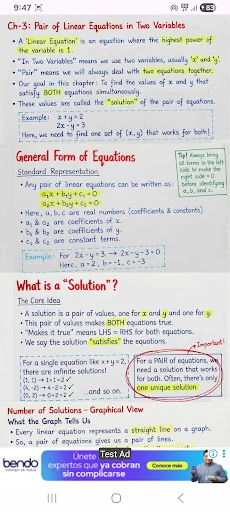 9:47
83
Ch-3: Pair of Linear Equations in Two Variables
• A 'Linear Equation' is an equation where the highest power of
the variable is 1.
• "In Two Variables" means we use two variables, usually 'x' and 'y'.
• "Pair" means we will always deal with two equations together.
• Our goal in this chapter: To find the values of x and y that
satisfy BOTH equations simultaneously.
• These values are called the "solution" of the pair of equations.
Example: x + y = 2
2x - y = 3
Here, we need to find one set of (x, y) that works for both!
General Form of Equations
Standard Representation
• Any pair of linear equations can be written as:
a₁x + b₁y + c₁ = 0
a₂x + b₂y + c₂ = 0
Tip! Always bring
all terms to the left
side to make the
right side = 0
before identifying
a, b, and c.
• Here, a, b, c are real numbers (coefficients & constants)
• a₁ & a₂ are coefficients of x.
• b₁ & b₂ are coefficients of y.
• c₁ & c₂ are constant terms.
Example: For 2x - y = 3 → 2x - y - 3 = 0
Here, a = 2, b = -1, c = -3
What is a "Solution"?
The Core Idea
• A solution is a pair of values, one for x and y and one for y.
• This pair of values makes BOTH equations true.
• "Makes it true" means LHS = RHS for both equations.
• We say the solution "satisfies" the equations.
Important!
For a single equation like x + y = 2,
there are infinite solutions!
(1, 1) → 1 + 1 = 2 ✓
(4, -2) → 4 - 2 = 2 ✓
(0, 2) → 0 + 2 = 2 ✓
...and so on.
For a PAIR of equations, we
need a solution that works
for both. Often, there's only
one unique solution!
Number of Solutions - Graphical View
What the Graph Tells Us
• Every linear equation represents a straight line on a graph.
• So, a pair of equations gives us a pair of lines.
Test Ad
bendo
Únete
expertos que ya cobran
sin complicarse
Conoce más